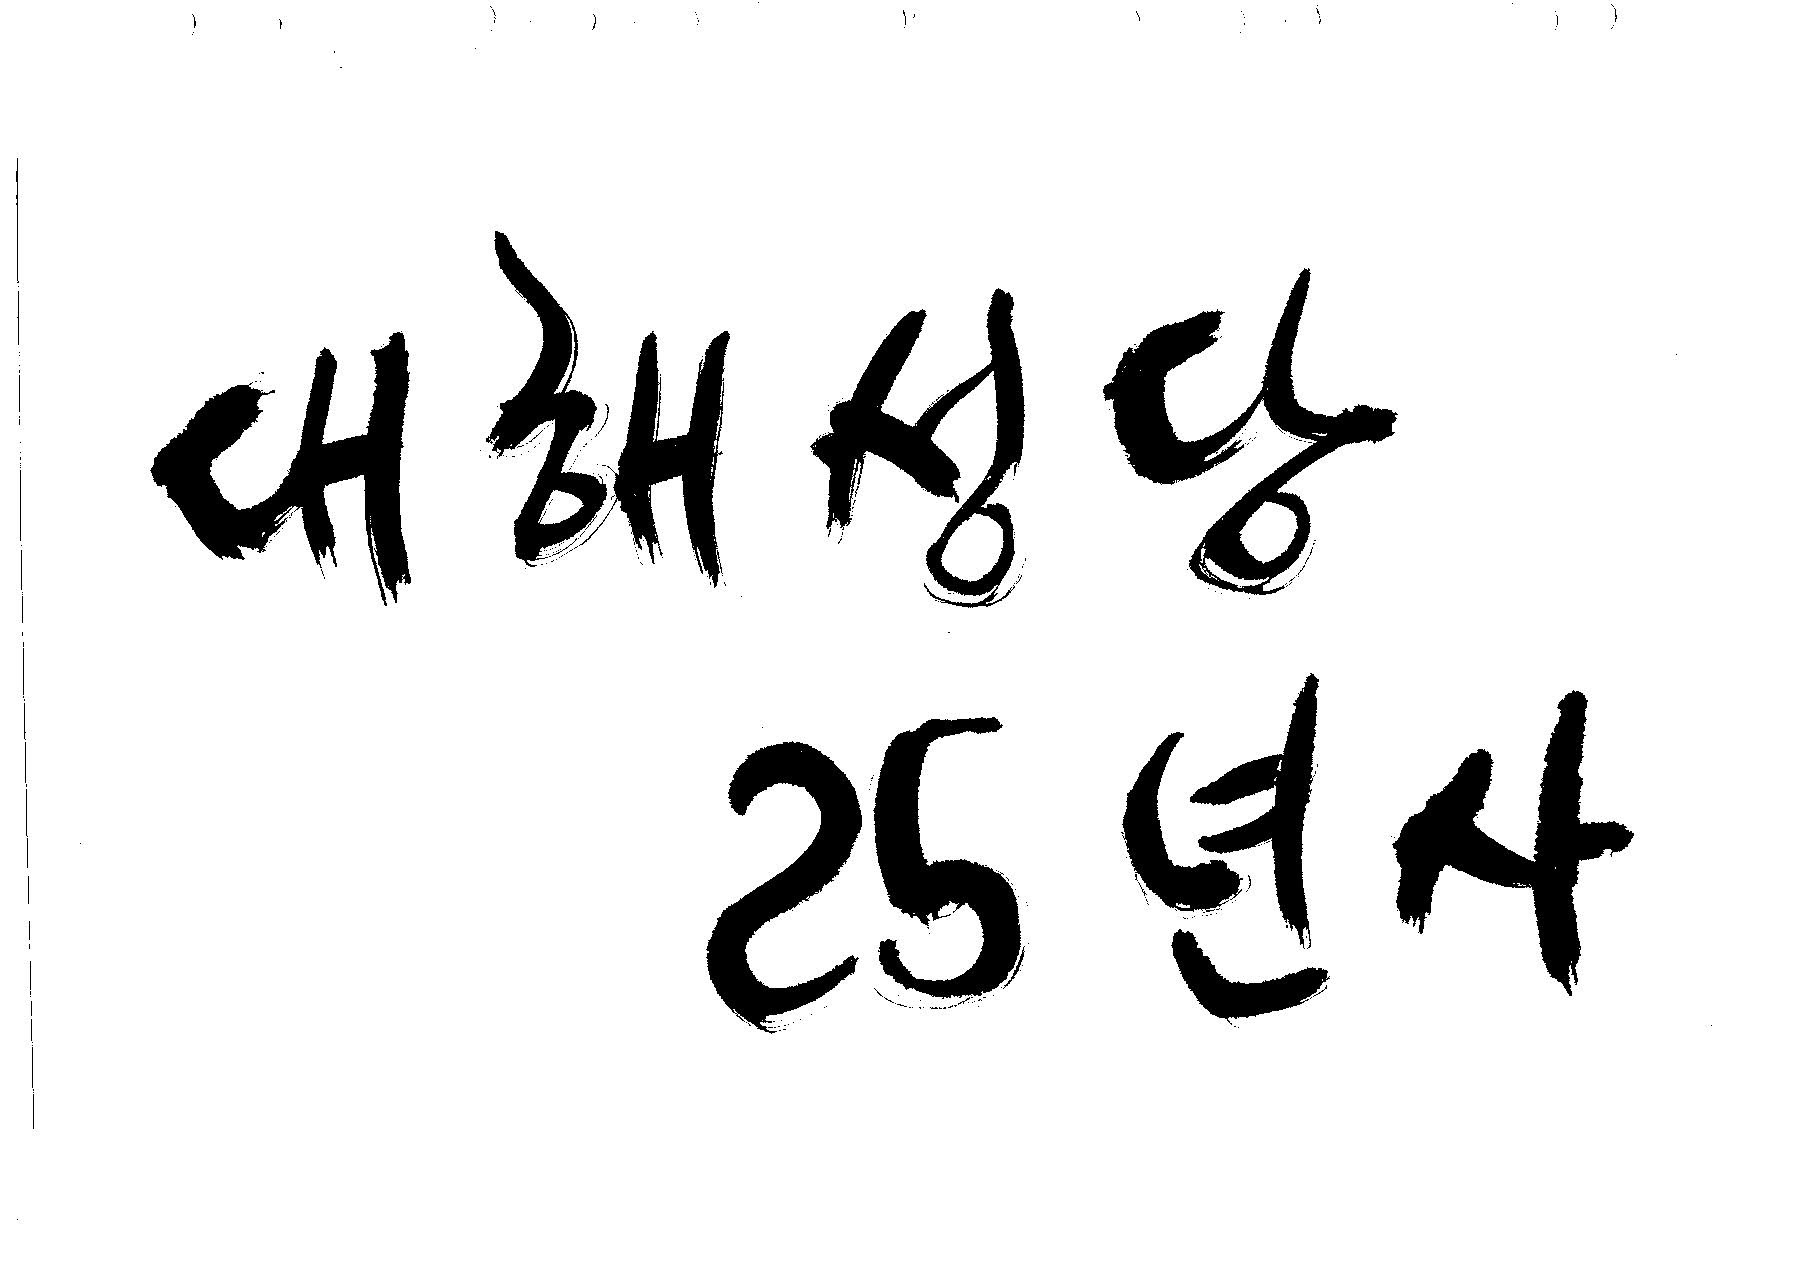 대해성당
25년사